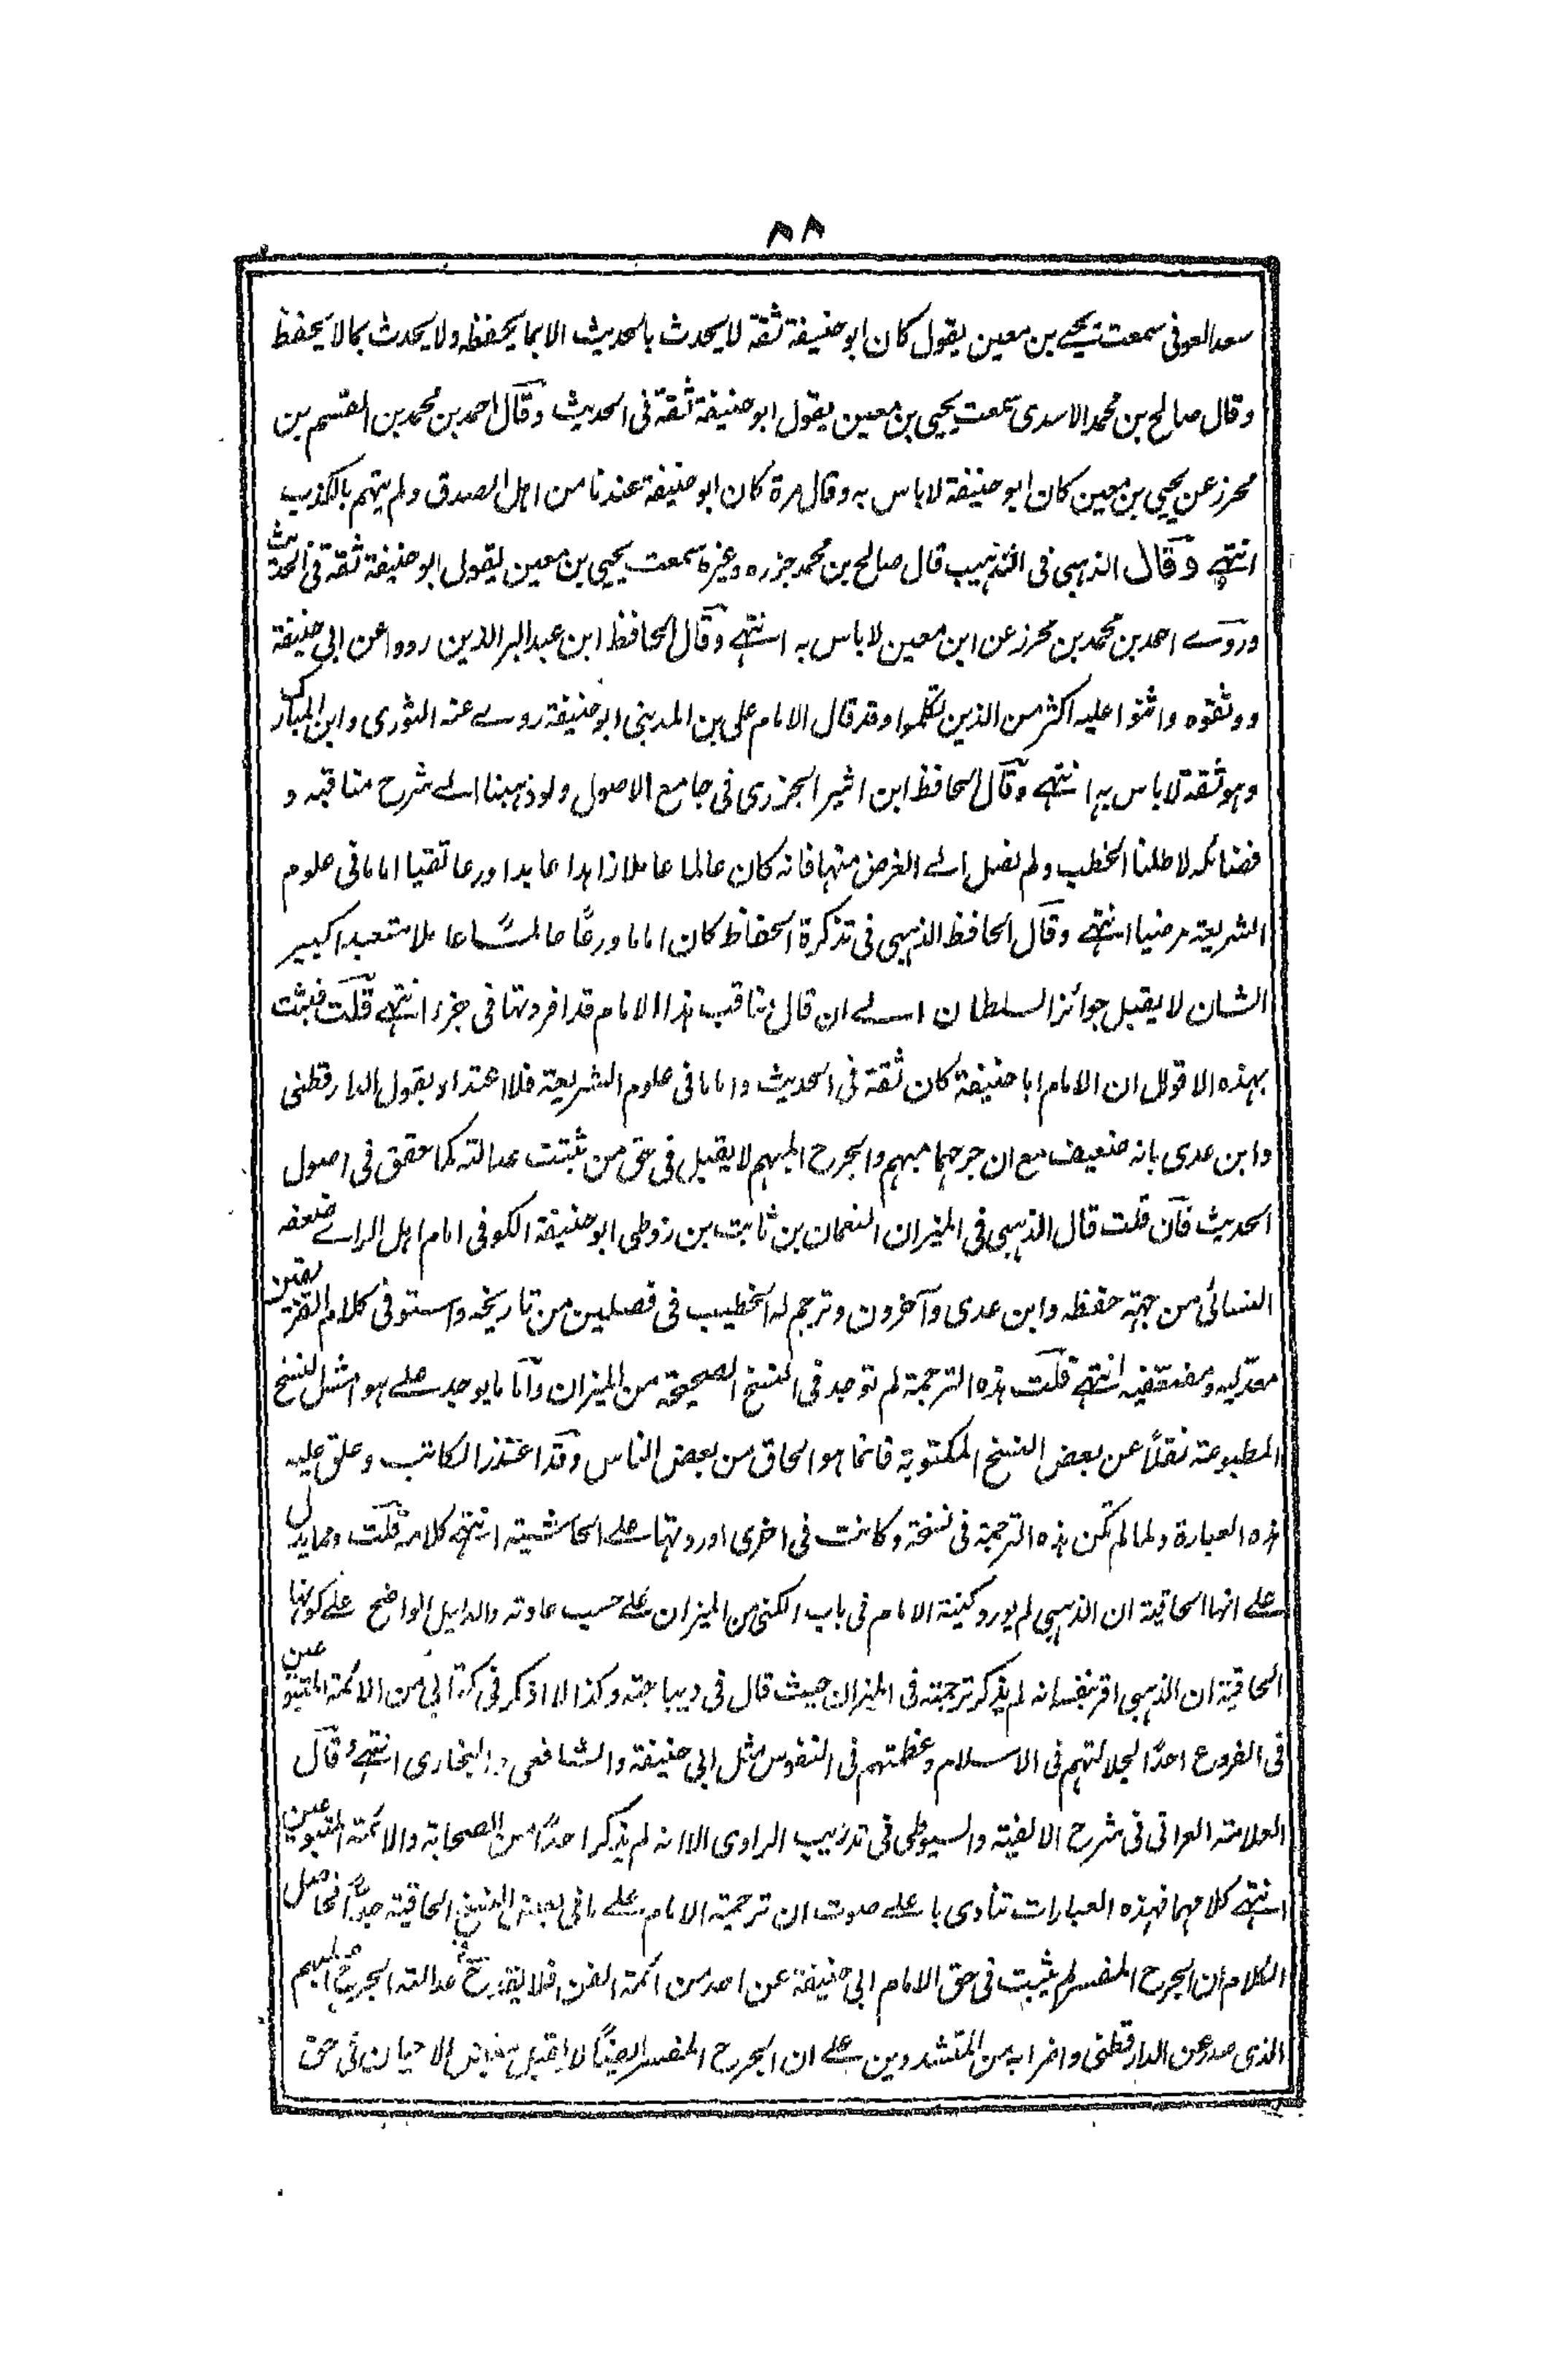 ٨٨
سعد العوفی سمعت یحیے بن معین یقول کان ابو حنیفۃ ثقۃ لا یحدث بالحدیث الا بما یحفظہ ولا یحدث بما لا یحفظ
وقال صالح بن محمد الاسدی سمعت یحیی بن معین یقول ابو حنیفۃ ثقۃ فی الحدیث وقال احمد بن محمد بن القسم بن
محرز عن یحیی بن معین کان ابو حنیفۃ لا باس بہ وقال مرۃ کان ابو حنیفۃ عندنا من اہل الصدق ولم یتہم بالکذب
انتہے وقال الذہبی فی التذہیب قال صالح بن محمد جزرہ وغیرہ سمعت یحیی بن معین یقول ابو حنیفۃ ثقۃ فی الحدیث
وروے احمد بن محمد بن محرز عن ابن معین لا باس بہ انتہے وقال الحافظ ابن عبد البر الذین رووا عن ابی حنیفۃ
ووثقوہ واثنوا علیہ اکثر من الذین تکلموا وقد قال الامام علی بن المدینی ابو حنیفۃ روے عنہ الثوری وابن المبارک
وہو ثقۃ لا باس بہ انتہے وقال الحافظ ابن اثیر الجزری فی جامع الاصول ولو ذہبنا الے شرح مناقبہ و
فضائلہ لاطلنا الخطب ولم نصل الے الغرض منہا فانہ کان عالما عاملا زاہدا عابدا ورعا تقیا اماما فی علوم
الشریعۃ مرضیا انتہے وقال الحافظ الذہبی فی تذکرۃ الحفاظ کان اماما ورعًا عالمًا عاملا متعبدا کبیر
الشان لا یقبل جوائز السلطان الے ان قال مناقب ہذا الامام قد افردتہا فی جزء انتہے قلت فثبت
بہذہ الاقوال ان الامام ابا حنیفۃ کان ثقۃ فی الحدیث واماما فی علوم الشریعۃ فلا اعتداد بقول الدارقطنی
وابن عدی بانہ ضعیف مع ان جرحہما مبہم والجرح المبہم لا یقبل فی حق من ثبتت عدالتہ کما حقق فی اصول
الحدیث فان قلت قال الذہبی فی المیزان النعمان بن ثابت بن زوطی ابو حنیفۃ الکوفی امام اہل الراے ضعفہ
النسائی من جہۃ حفظہ وابن عدی وآخرون وترجم لہ الخطیب فی فصلین من تاریخہ واستوفی کلام الفریقین
معدلیہ ومضعفیہ انتہے قلت ہذہ الترجمۃ لم توجد فی النسخ الصحیحۃ من المیزان واما ما یوجد علے ہوامش النسخ
المطبوعۃ نقلًا عن بعض النسخ المکتوبۃ فانما ہو الحاق من بعض الناس وقد اعتذر الکاتب وعلق علیہ
ہذہ العبارۃ ولما لم تکن ہذہ الترجمۃ فی نسخۃ وکانت فی اخری اوردتہا علے الحاشیۃ انتہے کلامہ قلت ومما یدل
علے انہا الحاقیۃ ان الذہبی لم یورد کنیۃ الامام فی باب الکنی من المیزان علے حسب عادتہ والدلیل الواضح علے کونہا
الحاقیۃ ان الذہبی اقر بنفسہ انہ لم یذکر ترجمتہ فی المیزان حیث قال فی دیباجتہ وکذا لا اذکر فی کتابی من الائمۃ المتبوعین
فی الفروع احدًا لجلالتہم فی الاسلام وعظمتہم فی النفوس مثل ابی حنیفۃ والشافعی والبخاری انتہے وقال
العلامۃ العراقی فی شرح الالفیۃ والسیوطی فی تدریب الراوی الا انہ لم یذکر احدًا من الصحابۃ والائمۃ المتبوعین
انتہے کلامہما فہذہ العبارات تنادی باعلے صوت ان ترجمۃ الامام علے ما فی بعض النسخ الحاقیۃ جدًا فحاصل
الکلام ان الجرح المفسر لم یثبت فی حق الامام ابی حنیفۃ عن احد من ائمۃ الفن فلا یقدح فی عدالتہ الجرح المبہم
الذی صدر عن الدارقطنی واضرابہ من المتشددین علے ان الجرح المفسر ایضًا لا یقبل بعض الاحیان فی حق